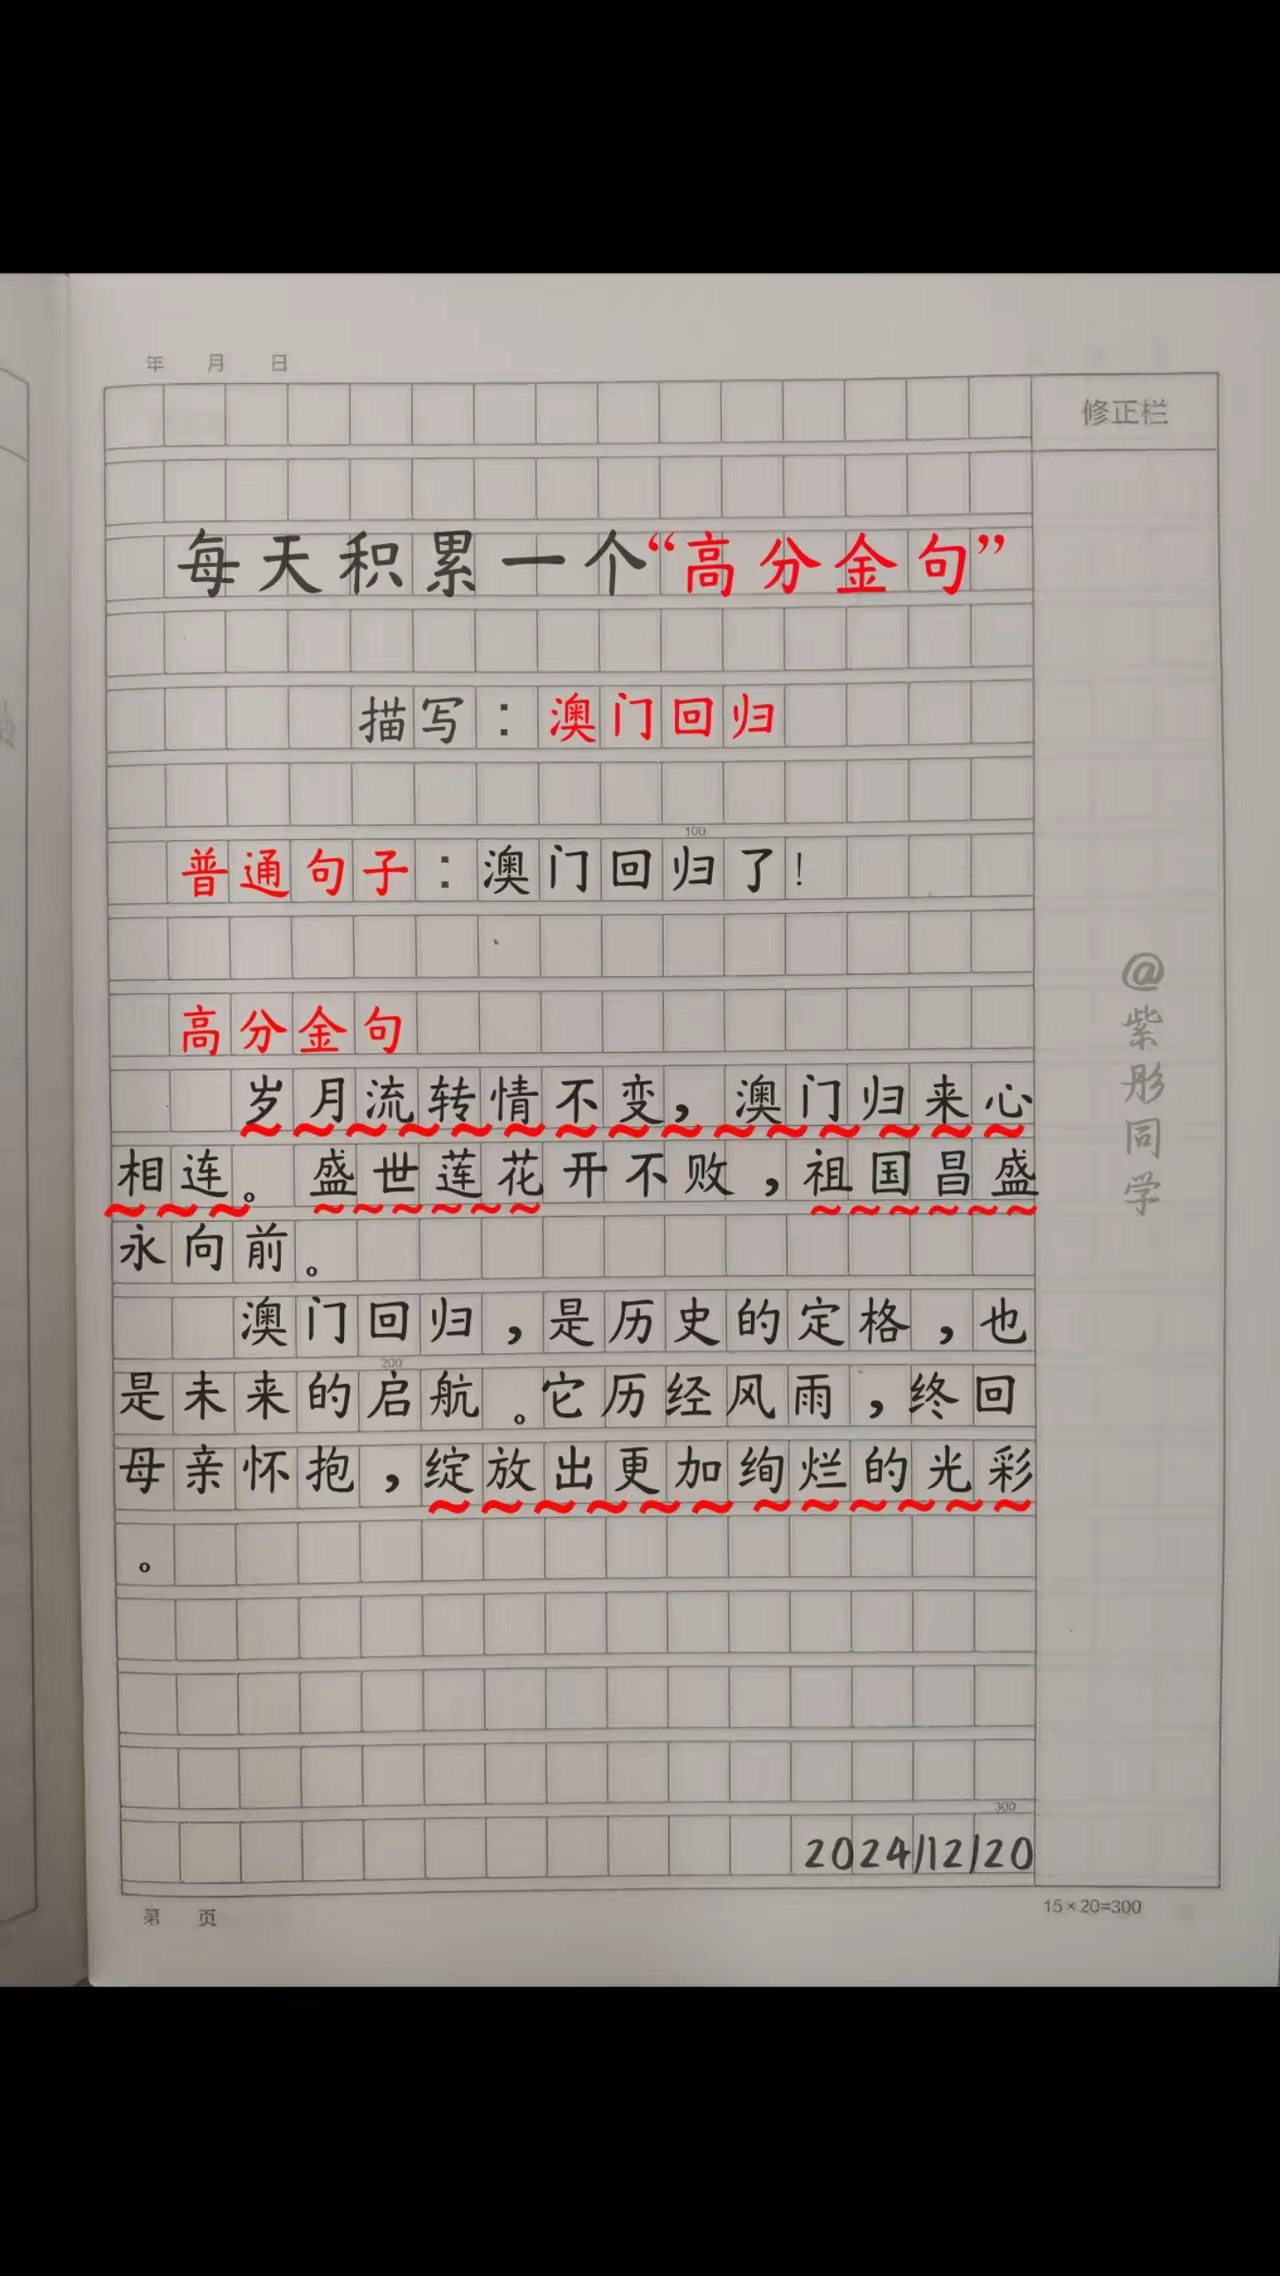 年 月 日
修正栏
每天积累一个“高分金句”
描写：澳门回归
100
普通句子：澳门回归了!
高分金句
岁月流转情不变，澳门归来心
相连。盛世莲花开不败，祖国昌盛
永向前。
澳门回归，是历史的定格，也
200
是未来的启航。它历经风雨，终回
母亲怀抱，绽放出更加绚烂的光彩
。
300
2024/12/20
第 页
15×20=300
@紫彤同学